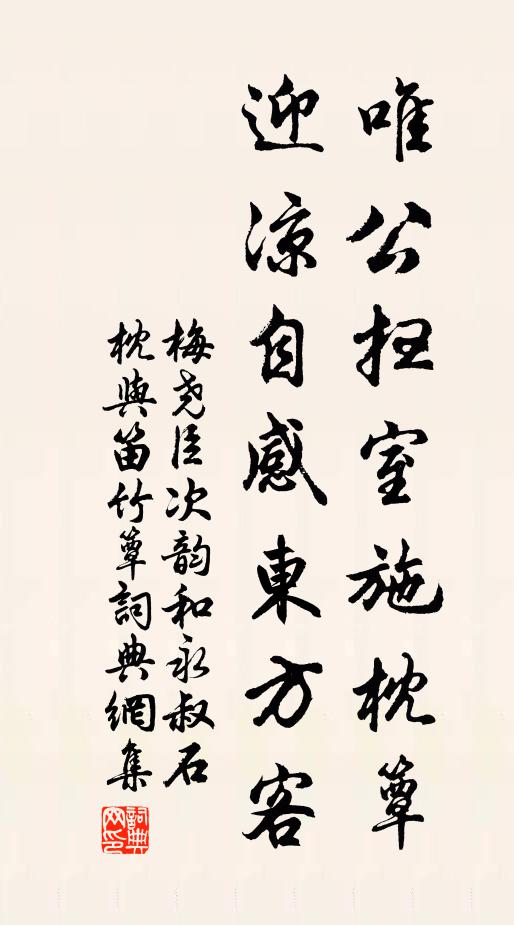 唯公扫室施枕簟
迎凉自感東方客
梅尧臣次韵和永叔石
枕與笛竹簟詞典網集
詞典网印